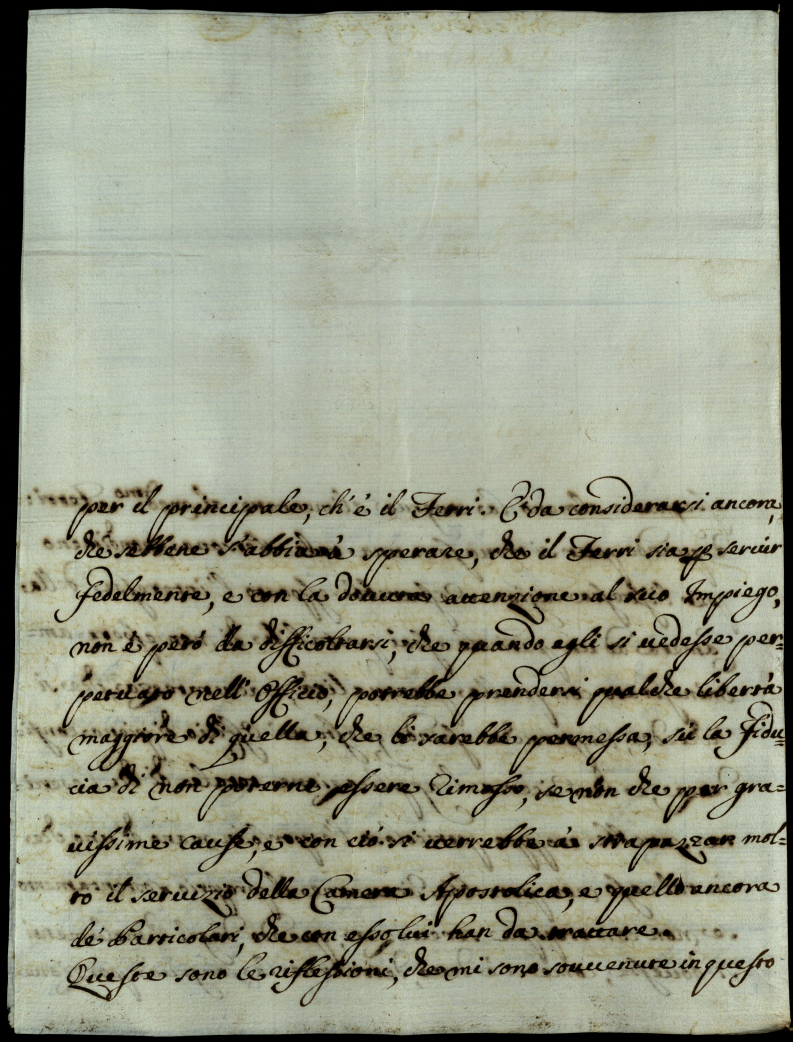 per il principale, ch'è il Ferri. È da considerarsi ancora,
che sebbene s'abbia à sperare, che il Ferri sia p servir
fedelmente, e con la dovuta attenzione al suo Impiego,
non è però da difficoltarsi, che quando egli si vedesse per=
petuato nell'Officio, potrebbe prendersi qualche libertà
maggiore di quella, che li sarebbe permessa, sù la fidu=
cia di non poterne essere rimosso, se non che per gra=
vissime cause, e con ciò si verrebbe à strapazzar mol=
to il servizio della Camera Apostolica, e quello ancora
de' Particolari, che con essolui han da trattare.
Queste sono le riflessioni, che mi sono sovvenute in questo